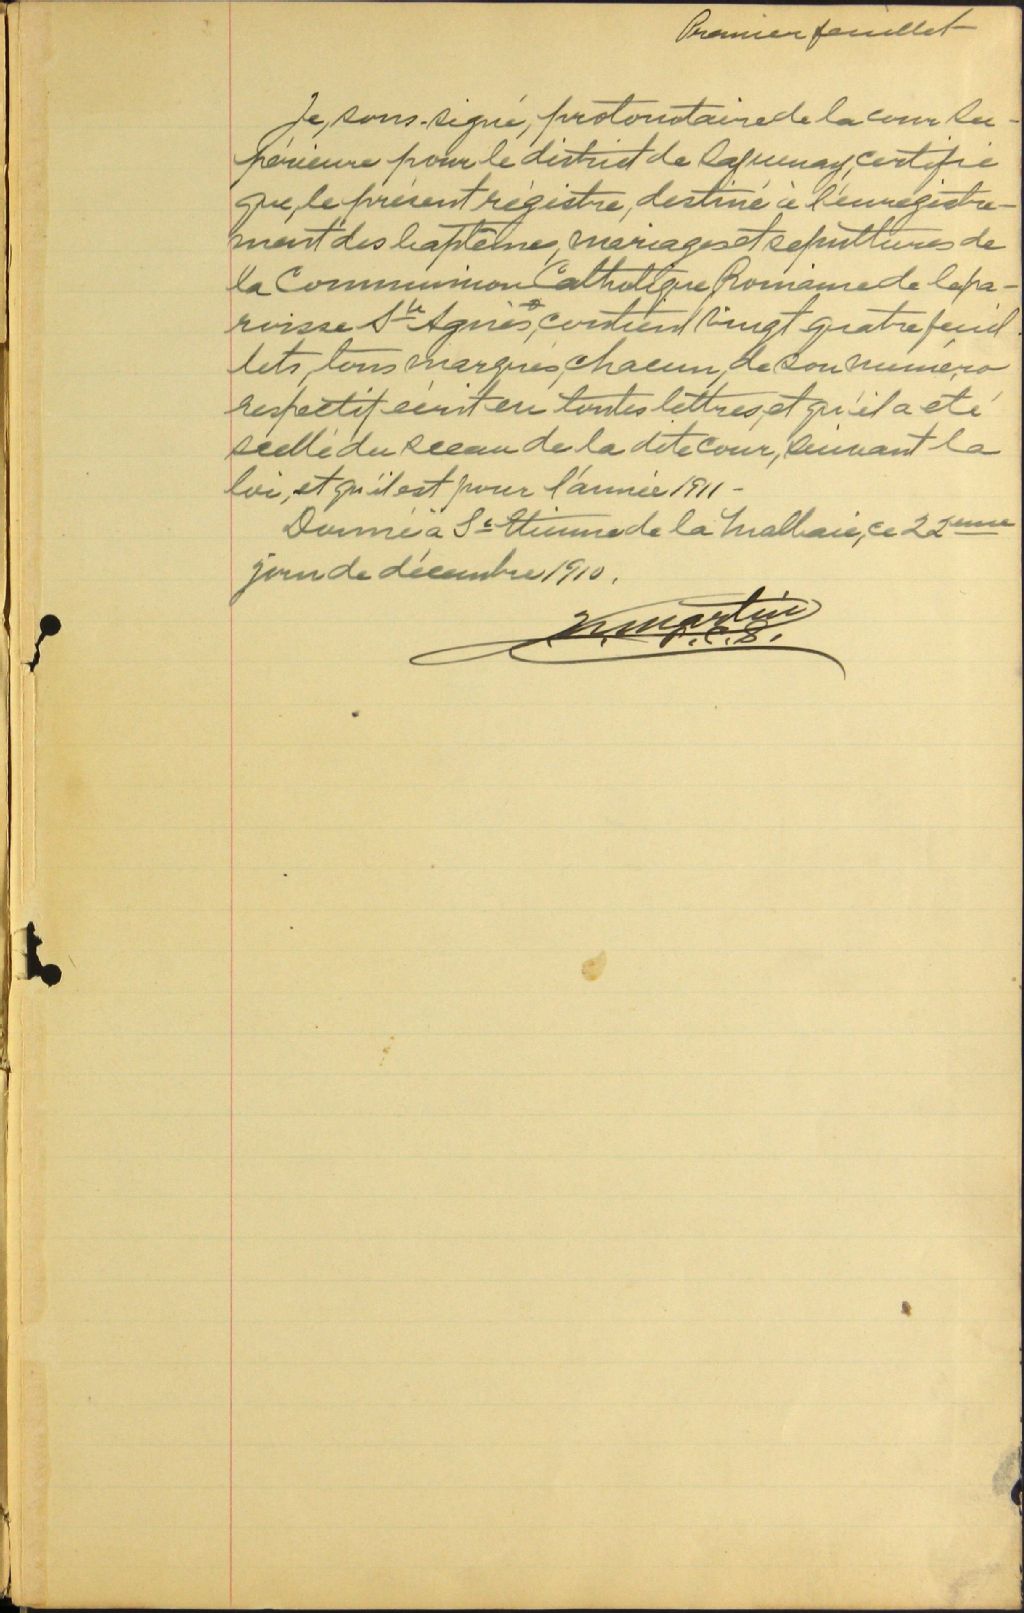 Premier feuillet
Je, sous-signé, protonotaire de la cour Su-
périeure pour le district de Saguenay, certifie
que, le présent régistre, destiné à l'enregistre-
ment des baptêmes, mariages et sepultures de
la Communion Catholique, Romaine de la pa-
roisse Ste Agnès, contient vingt quatre feuil
lets, tous marqués, chacun, de son numéro
respectif écrit en toutes lettres, et qu'il a été
scellé du sceau de la dite cour, suivant la
loi, et qu'il est pour l'année 1911 -
Donné à St Etienne de la Malbaie, ce 22eme
jour de décembre 1910.
Martin
P.C.S.